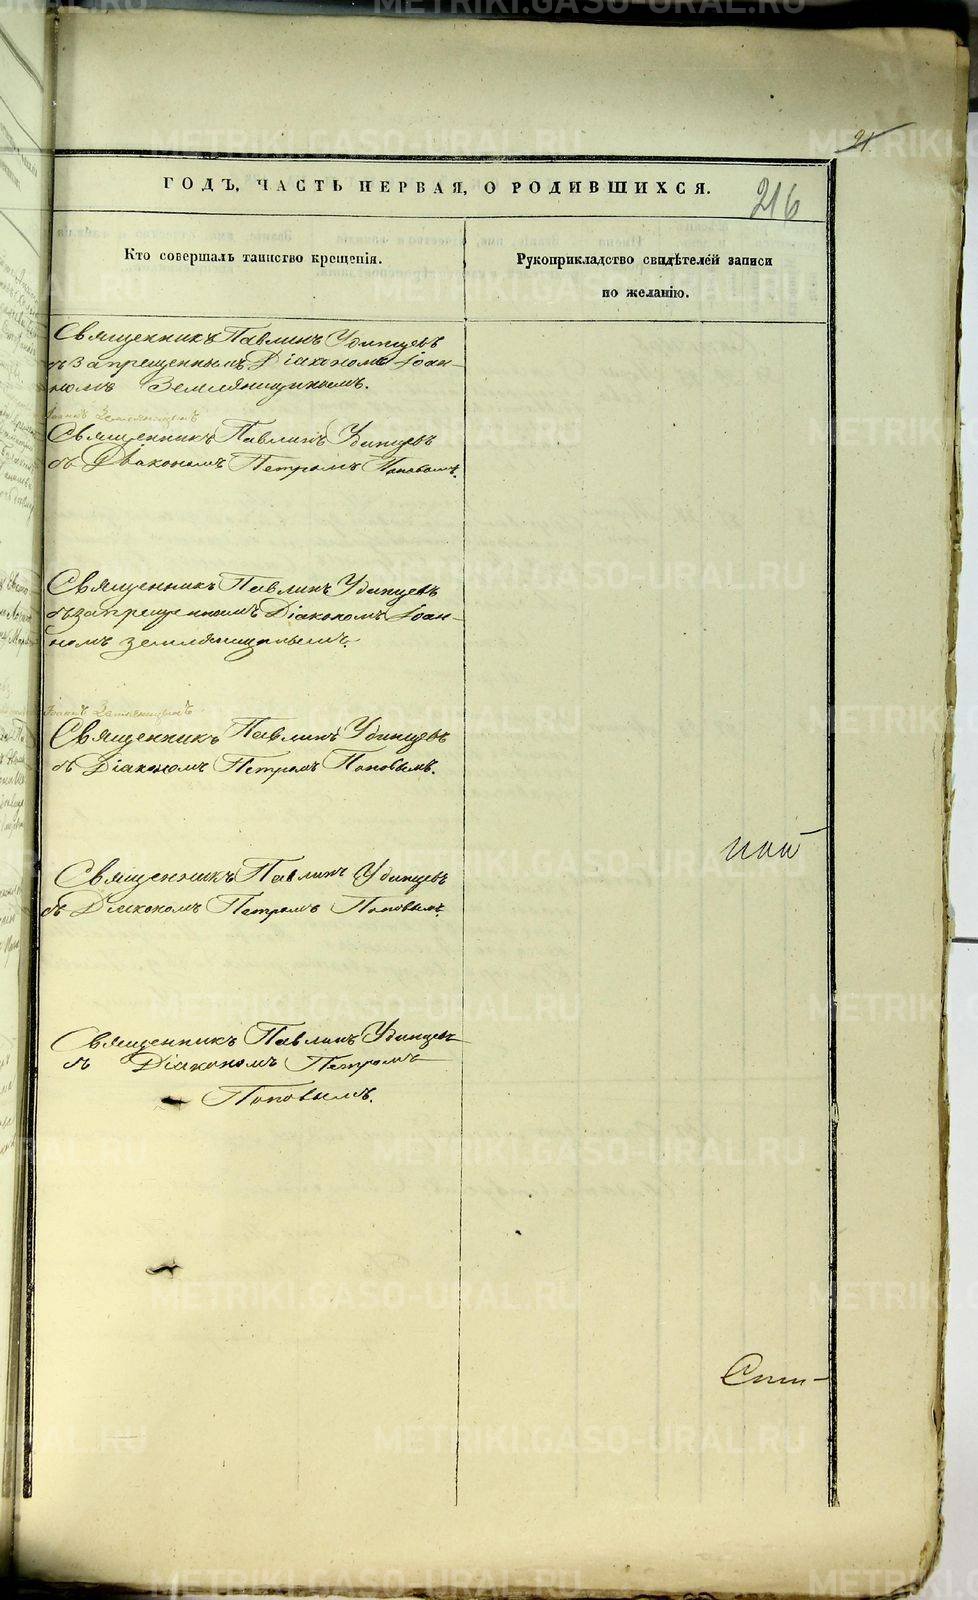 21
ГОДЪ, ЧАСТЬ ПЕРВАЯ, О РОДИВШИХСЯ.
216
Кто совершалъ таинство крещенія.
Рукоприкладство свидѣтелей записи
по желанію.
Священникъ Павлинъ Удинцевъ
съ запрещеннымъ Діакономъ Іоан-
номъ Земляницинымъ.
Іоаннъ Землянницынъ
Священникъ Павлинъ Удинцевъ
съ Діакономъ Петромъ Поповымъ.
Священникъ Павлинъ Удинцевъ
съ запрещеннымъ Діакономъ Іоан-
номъ Земляницынымъ.
Іоаннъ Земляницынъ
Священникъ Павлинъ Удинцевъ
съ Діакономъ Петромъ Поповымъ.
ной
Священникъ Павлинъ Удинцевъ
съ Діакономъ Петромъ Поповымъ.
Священникъ Павлинъ Удинцевъ
съ Діакономъ Петромъ
Поповымъ.
METRIKI.GASO-URAL.RU